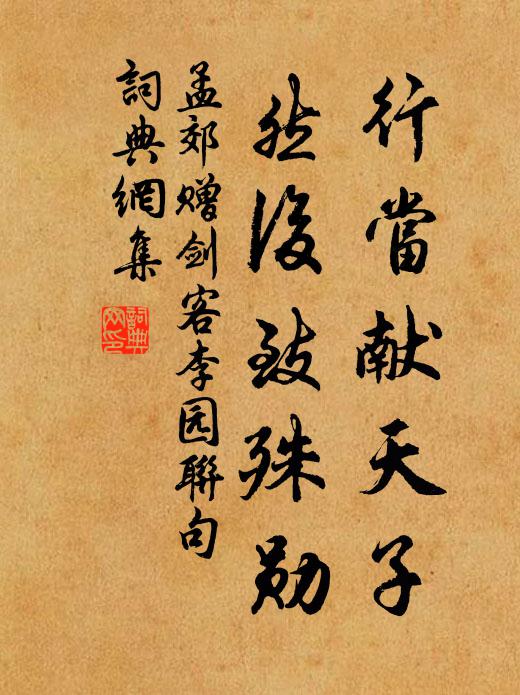 行當献天子
然後致殊勋
孟郊赠剑客李园聯句
詞典網集
詞典网印